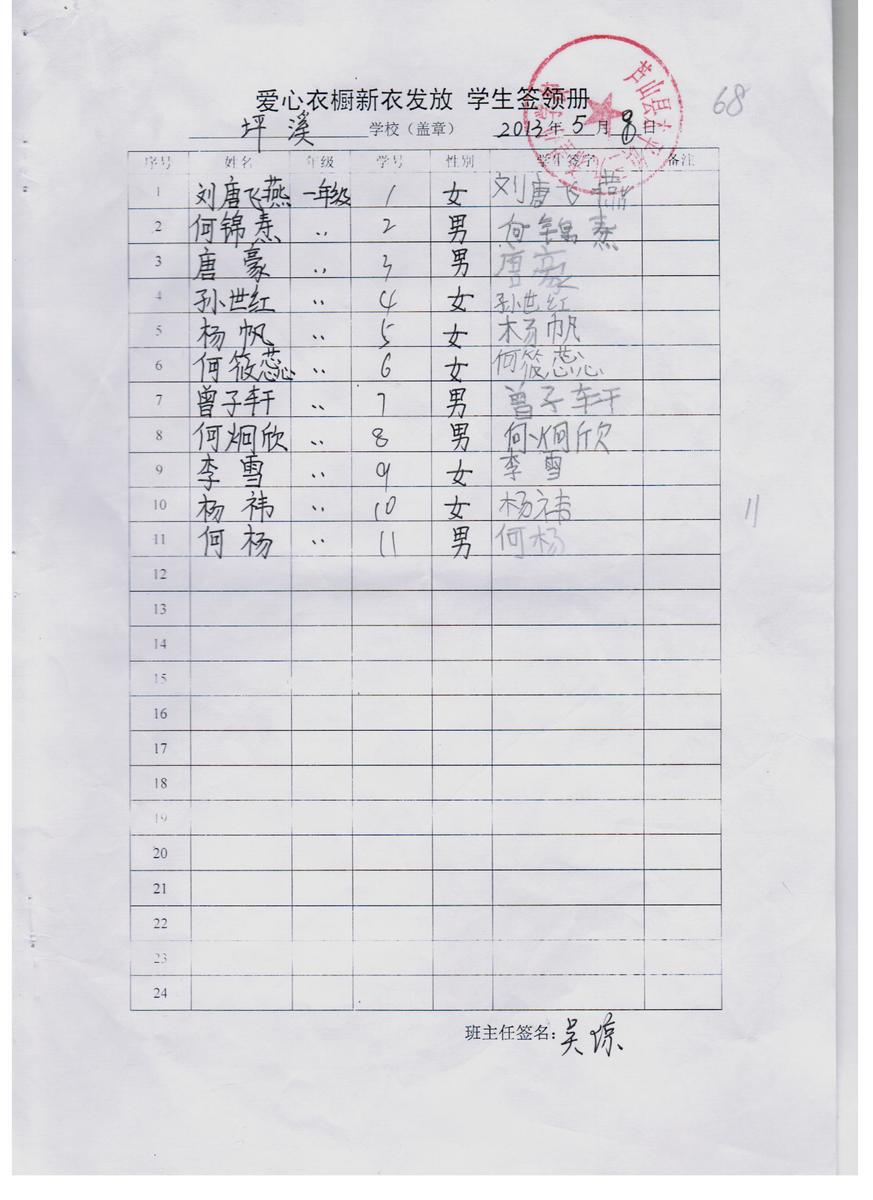 爱心衣橱新衣发放 学生签领册
68
坪溪 学校（盖章） 2013年5月8日
芦山县太平
序号 姓名 年级 学号 性别 学生签字 备注
1 刘唐飞燕 一年级 1 女 刘唐飞燕
2 何锦焘 〃 2 男 何锦焘
3 唐豪 〃 3 男 唐豪
4 孙世红 〃 4 女 孙世红
5 杨帆 〃 5 女 杨帆
6 何筱蕊 〃 6 女 何筱蕊
7 曾子轩 〃 7 男 曾子轩
8 何炯欣 〃 8 男 何炯欣
9 李雪 〃 9 女 李雪
10 杨祎 〃 10 女 杨祎
11
11 何杨 〃 11 男 何杨
12
13
14
15
16
17
18
19
20
21
22
23
24
班主任签名：吴琼